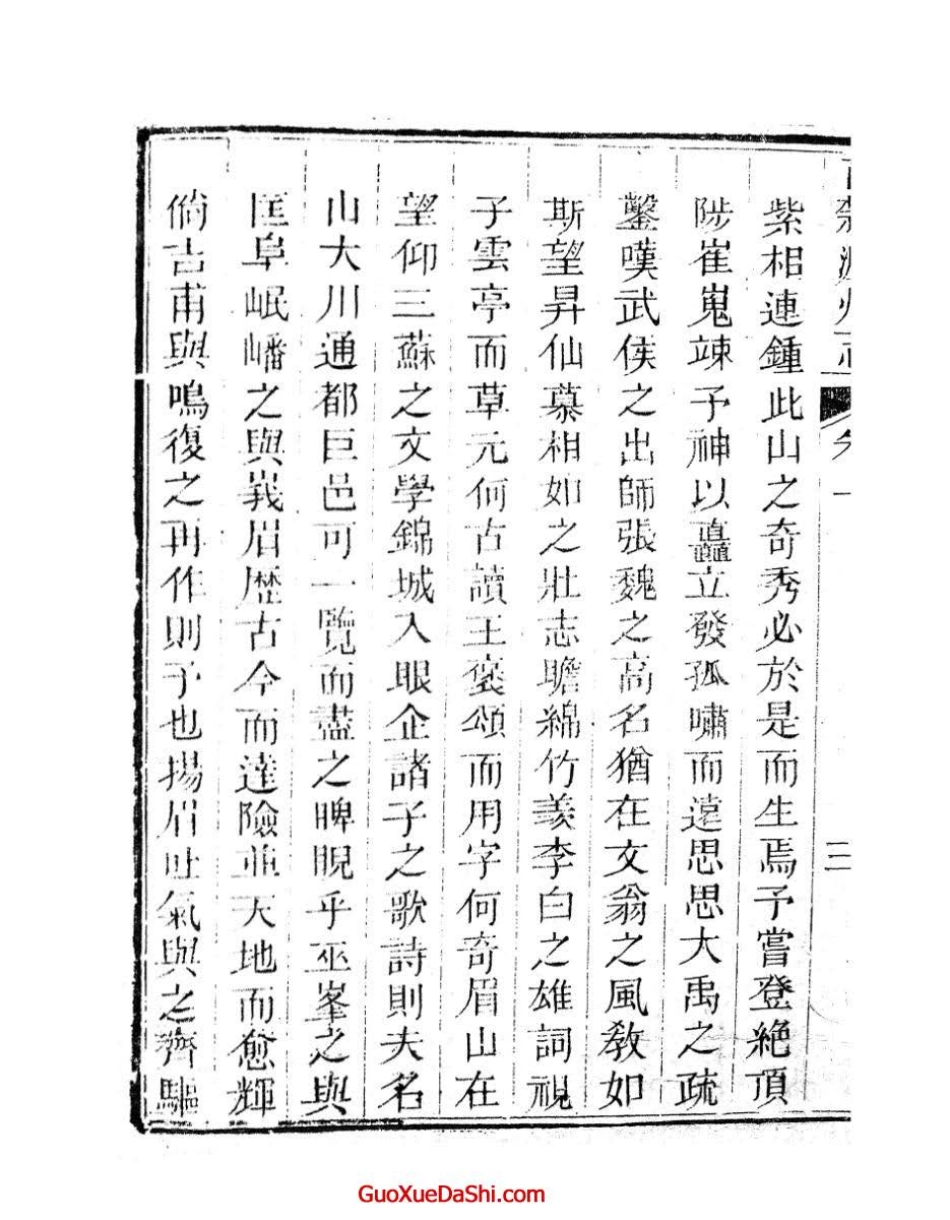 紫相連鍾此山之奇秀必於是而生焉予嘗登絶頂
陟崔嵬竦予神以矗立發孤嘯而遠思思大禹之疏
鑿嘆武侯之出師張魏之高名猶在文翁之風教如
斯望昇仙慕相如之壯志瞻綿竹羨李白之雄詞視
子雲亭而草元何古讀王褒頌而用字何奇眉山在
望仰三蘇之文學錦城入眼企諸子之歌詩則夫名
山大川通都巨邑可一覽而盡之睥睨乎巫峯之與
匡阜岷嶓之與峩眉歴古今而達險並天地而愈輝
倘吉甫與鳴復之再作則予也揚眉吐氣與之齊驅
GuoXueDaShi.com